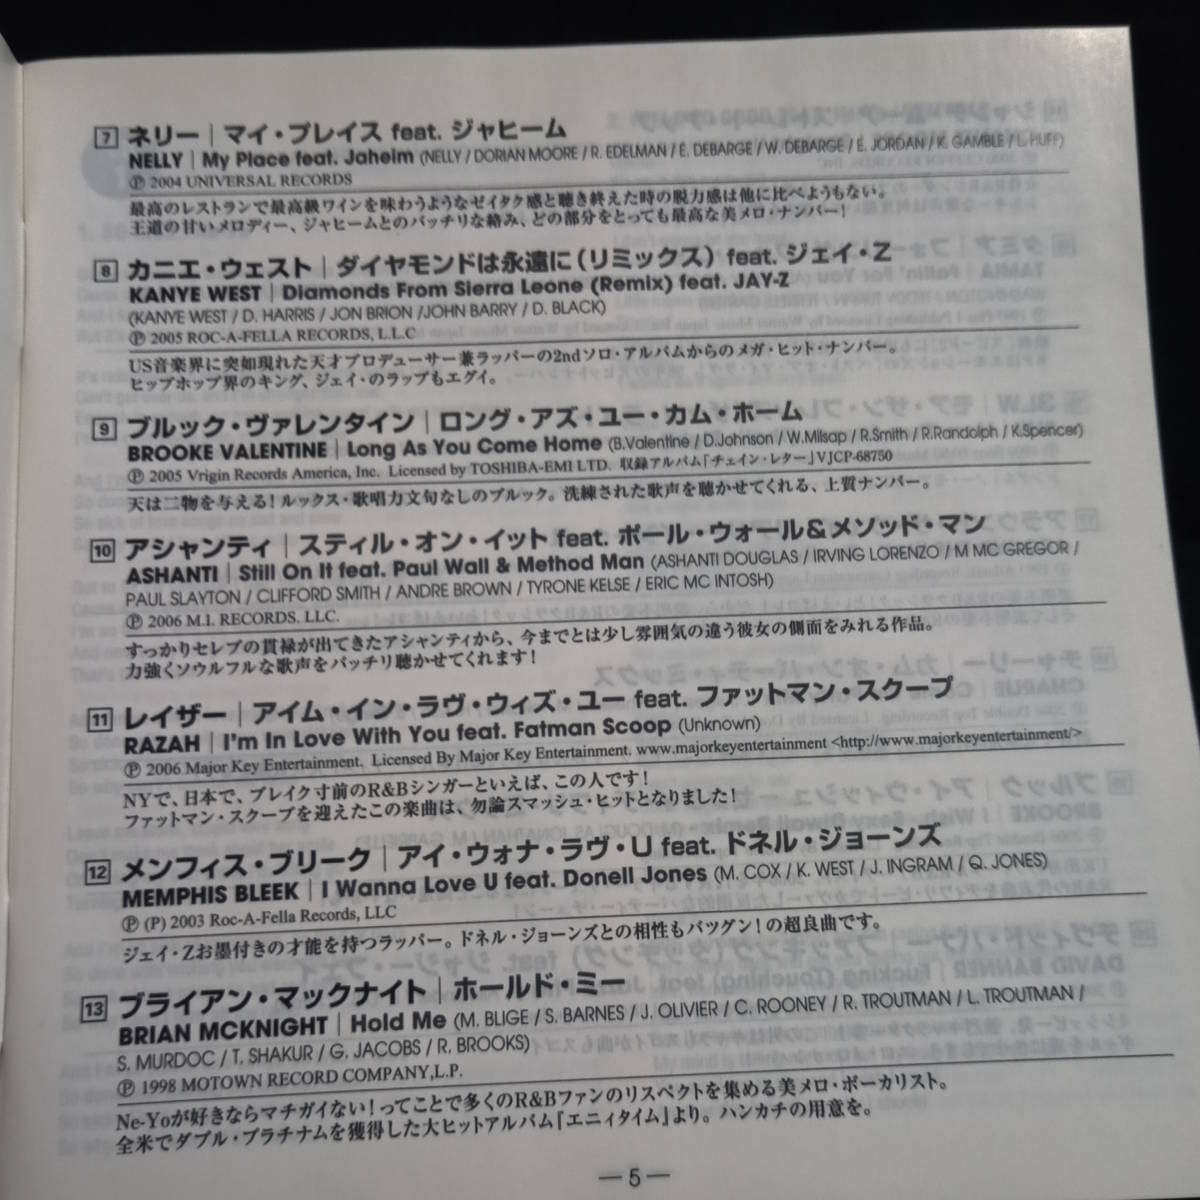 7 ネリー｜マイ・プレイス feat. ジャヒーム
NELLY | My Place feat. Jaheim (NELLY / DORIAN MOORE / R. EDELMAN / E. DEBARGE / W. DEBARGE / E. JORDAN / K. GAMBLE / L. HUFF)
Ⓟ 2004 UNIVERSAL RECORDS
最高のレストランで最高級ワインを味わうようなゼイタク感と聴き終えた時の脱力感は他に比べようもない。
王道の甘いメロディー、ジャヒームとのバッチリな絡み、どの部分をとっても最高な美メロ・ナンバー！
8 カニエ・ウェスト｜ダイヤモンドは永遠に（リミックス）feat. ジェイ・Z
KANYE WEST | Diamonds From Sierra Leone (Remix) feat. JAY-Z
(KANYE WEST / D. HARRIS / JON BRION /JOHN BARRY / D. BLACK)
Ⓟ 2005 ROC-A-FELLA RECORDS, L.L.C
US音楽界に突如現れた天才プロデューサー兼ラッパーの2ndソロ・アルバムからのメガ・ヒット・ナンバー。
ヒップホップ界のキング、ジェイ・のラップもエグイ。
9 ブルック・ヴァレンタイン｜ロング・アズ・ユー・カム・ホーム
BROOKE VALENTINE | Long As You Come Home (B.Valentine / D.Johnson / W.Milsap / R.Smith / R.Randolph / K.Spencer)
Ⓟ 2005 Vrigin Records America, Inc. Licensed by TOSHIBA-EMI LTD. 収録アルバム「チェイン・レター」VJCP-68750
天は二物を与える！ルックス・歌唱力文句なしのブルック。洗練された歌声を聴かせてくれる、上質ナンバー。
10 アシャンティ｜スティル・オン・イット feat. ポール・ウォール＆メソッド・マン
ASHANTI | Still On It feat. Paul Wall & Method Man (ASHANTI DOUGLAS / IRVING LORENZO / M MC GREGOR /
PAUL SLAYTON / CLIFFORD SMITH / ANDRE BROWN / TYRONE KELSE / ERIC MC INTOSH)
Ⓟ 2006 M.I. RECORDS. LLC.
すっかりセレブの貫禄が出てきたアシャンティから、今までとは少し雰囲気の違う彼女の側面をみれる作品。
力強くソウルフルな歌声をバッチリ聴かせてくれます！
11 レイザー｜アイム・イン・ラヴ・ウィズ・ユー feat. ファットマン・スクープ
RAZAH | I'm In Love With You feat. Fatman Scoop (Unknown)
Ⓟ 2006 Major Key Entertainment. Licensed By Major Key Entertainment. www.majorkeyentertainment <http://www.majorkeyentertainment/>
NYで、日本で、ブレイク寸前のR&Bシンガーといえば、この人です！
ファットマン・スクープを迎えたこの楽曲は、勿論スマッシュ・ヒットとなりました！
12 メンフィス・ブリーク｜アイ・ウォナ・ラヴ・U feat. ドネル・ジョーンズ
MEMPHIS BLEEK | I Wanna Love U feat. Donell Jones (M. COX / K. WEST / J. INGRAM / Q. JONES)
Ⓟ (P) 2003 Roc-A-Fella Records, LLC
ジェイ・Zお墨付きの才能を持つラッパー。ドネル・ジョーンズとの相性もバツグン！の超良曲です。
13 ブライアン・マックナイト｜ホールド・ミー
BRIAN MCKNIGHT | Hold Me (M. BLIGE / S. BARNES / J. OLIVIER / C. ROONEY / R. TROUTMAN / L. TROUTMAN /
S. MURDOC / T. SHAKUR / G. JACOBS / R. BROOKS)
Ⓟ 1998 MOTOWN RECORD COMPANY,L.P.
Ne-Yoが好きならマチガイない！ってことで多くのR&Bファンのリスペクトを集める美メロ・ボーカリスト。
全米でダブル・プラチナムを獲得した大ヒットアルバム『エニィタイム』より。ハンカチの用意を。
—5—